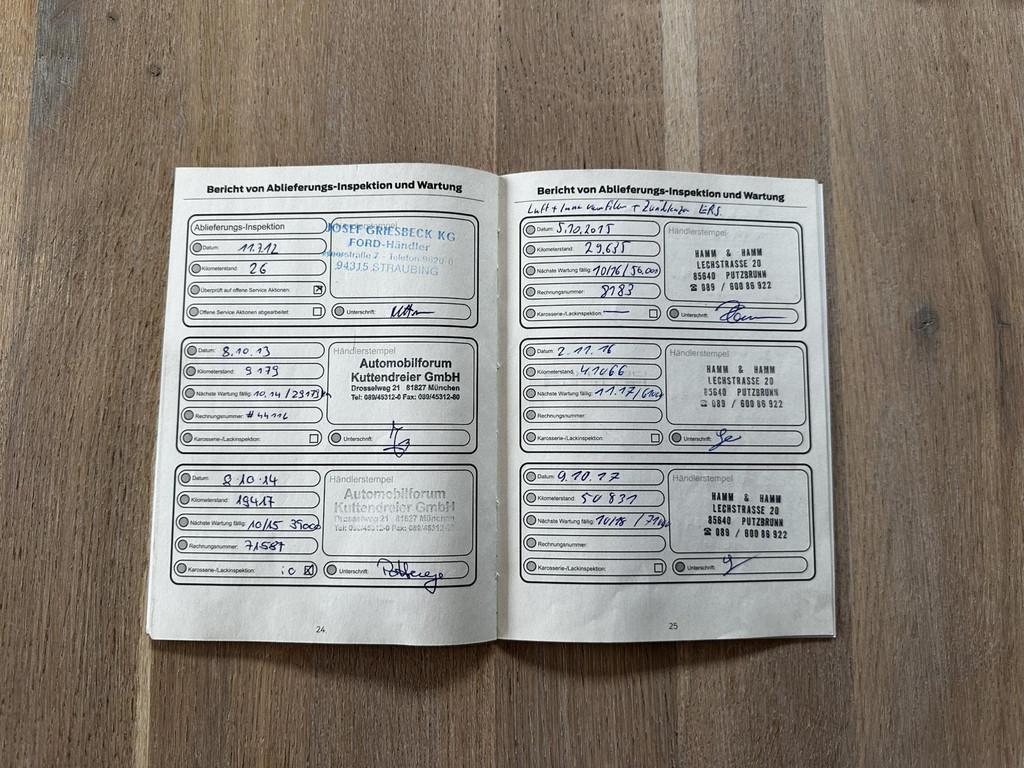 Bericht von Ablieferungs-Inspektion und Wartung
Ablieferungs-Inspektion
Datum: 11.7.12
Kilometerstand: 26
Überprüft auf offene Service Aktionen:
Offene Service Aktionen abgearbeitet:
JOSEF GRIESBECK KG
FORD-Händler
94315 STRAUBING
Unterschrift:
Datum: 8.10.13
Kilometerstand: 9179
Nächste Wartung fällig: 10.14
Rechnungsnummer: #44116
Karosserie-/Lackinspektion:
Händlerstempel
Automobilforum
Kuttendreier GmbH
Drosselweg 21 81827 München
Tel: 089/45312-0 Fax: 089/45312-80
Unterschrift:
Datum: 8.10.14
Kilometerstand: 19417
Nächste Wartung fällig: 10/15 39000
Rechnungsnummer: 71587
Karosserie-/Lackinspektion: i.O
Händlerstempel
Automobilforum
Kuttendreier GmbH
Drosselweg 21 81827 München
Unterschrift:
24
Bericht von Ablieferungs-Inspektion und Wartung
Luft + Innenraumfilter + Zündkerzen ERS.
Datum: 5.10.2015
Kilometerstand: 29.635
Nächste Wartung fällig: 10/16
Rechnungsnummer: 8183
Karosserie-/Lackinspektion:
Händlerstempel
HAMM & HAMM
LECHSTRASSE 20
85640 PUTZBRUNN
☎ 089 / 600 86 922
Unterschrift:
Datum: 2.11.16
Kilometerstand: 41066
Nächste Wartung fällig: 11.17
Rechnungsnummer:
Karosserie-/Lackinspektion:
Händlerstempel
HAMM & HAMM
LECHSTRASSE 20
85640 PUTZBRUNN
☎ 089 / 600 86 922
Unterschrift:
Datum: 9.10.17
Kilometerstand: 50831
Nächste Wartung fällig: 10/18
Rechnungsnummer:
Karosserie-/Lackinspektion:
Händlerstempel
HAMM & HAMM
LECHSTRASSE 20
85640 PUTZBRUNN
☎ 089 / 600 86 922
Unterschrift:
25